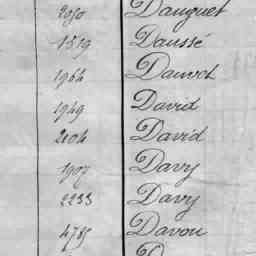 2080 Dauguet
1519 Daussé
1964 Dauvot
1949 David
2204 David
1907 Davy
2233 Davy
4795 Davou